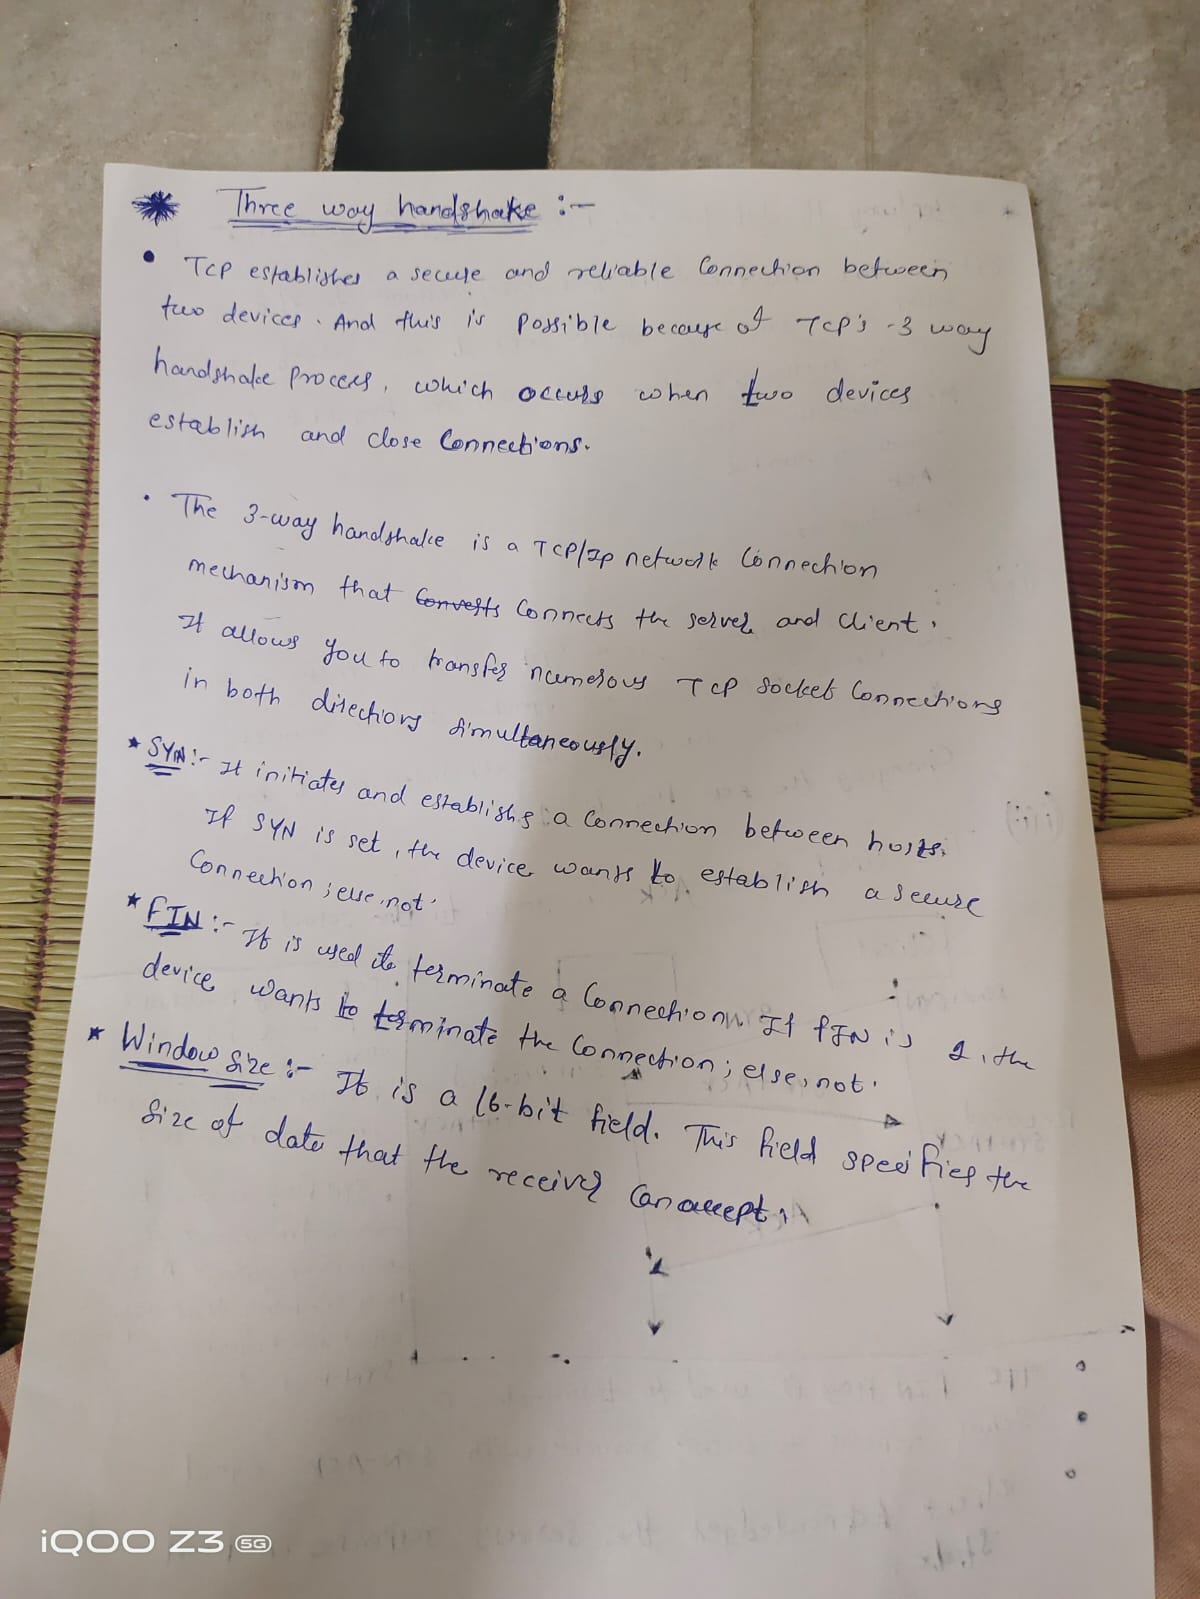 Three way handshake :-
• TCP establishes a secure and reliable Connection between
two devices. And this is possible because of TCP's -3 way
handshake process, which occurs when two devices
establish and close Connections.
• The 3-way handshake is a TCP/Ip network Connection
mechanism that Converts Connects the server and Client.
It allows you to transfer numerous TCP socket Connections
in both directions simultaneously.
* SYN :- It initiates and establishes a Connection between hosts.
If SYN is set, the device wants to establish a secure
Connection; else, not.
* FIN :- It is used to terminate a Connection. If FIN is 1, the
device wants to terminate the Connection; else, not.
* Window size :- It is a 16-bit field. This field specifies the
size of data that the receiver can accept.
iQOO Z3 5G